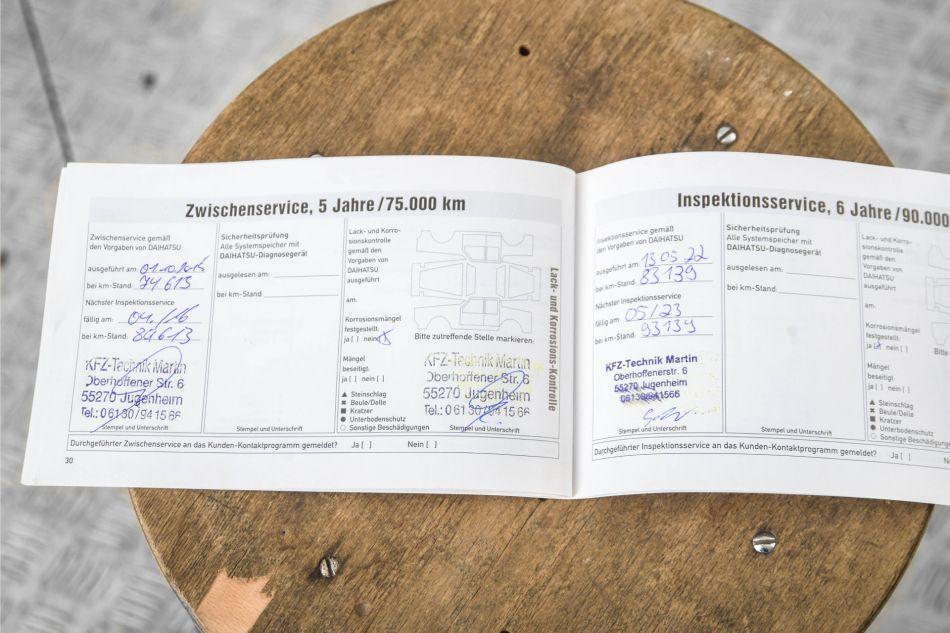 Zwischenservice, 5 Jahre/75.000 km
Zwischenservice gemäß
den Vorgaben von DAIHATSU
ausgeführt am: 01.10.2015
bei km-Stand: 74.613
Nächster Inspektionsservice
fällig am: 04./16
bei km-Stand: 84613
KFZ-Technik Martin
Oberhoffener Str. 6
55270 Jugenheim
Tel.: 0 61 30 / 94 15 66
Stempel und Unterschrift
Sicherheitsprüfung
Alle Systemspeicher mit
DAIHATSU-Diagnosegerät
ausgelesen am:
bei km-Stand:
Lack- und Korro-
sionskontrolle
gemäß den
Vorgaben von
DAIHATSU
ausgeführt
am:
Korrosionsmängel
festgestellt:
ja [ ] nein [x]
Mängel
beseitigt:
ja [ ] nein [ ]
▲ Steinschlag
✖ Beule/Delle
■ Kratzer
● Unterbodenschutz
○ Sonstige Beschädigungen
Bitte zutreffende Stelle markieren:
KFZ-Technik Martin
Oberhoffener Str. 6
55270 Jugenheim
Tel.: 0 61 30 / 94 15 66
Stempel und Unterschrift
Lack- und Korrosions-Kontrolle
Durchgeführter Zwischenservice an das Kunden-Kontaktprogramm gemeldet? Ja [ ] Nein [ ]
30
Inspektionsservice, 6 Jahre/90.000
Inspektionsservice gemäß
den Vorgaben von DAIHATSU
ausgeführt am: 13 05 22
bei km-Stand: 83139
Nächster Inspektionsservice
fällig am: 05/23
bei km-Stand: 93139
KFZ-Technik Martin
Oberhoffenerstr. 6
55270 Jugenheim
06130/941566
Stempel und Unterschrift
Sicherheitsprüfung
Alle Systemspeicher mit
DAIHATSU-Diagnosegerät
ausgelesen am:
bei km-Stand:
Lack- und Korro-
sionskontrolle
gemäß den
Vorgaben von
DAIHATSU
ausgeführt
am:
Korrosionsmängel
festgestellt:
ja [x] nein [ ]
Mängel
beseitigt:
ja [ ] nein [ ]
▲ Steinschlag
✖ Beule/Delle
■ Kratzer
● Unterbodenschutz
○ Sonstige Beschädigungen
Bitte
Durchgeführter Inspektionsservice an das Kunden-Kontaktprogramm gemeldet? Ja [ ]